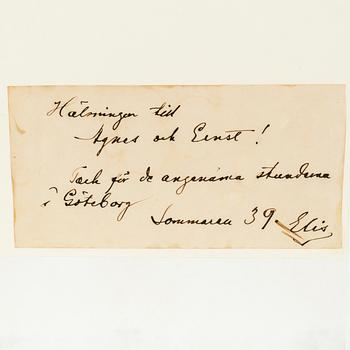 Hälsningar till
Agnes och Ernst!
Tack för de angenäma stunderna
i Göteborg
Sommaren 39. Elis